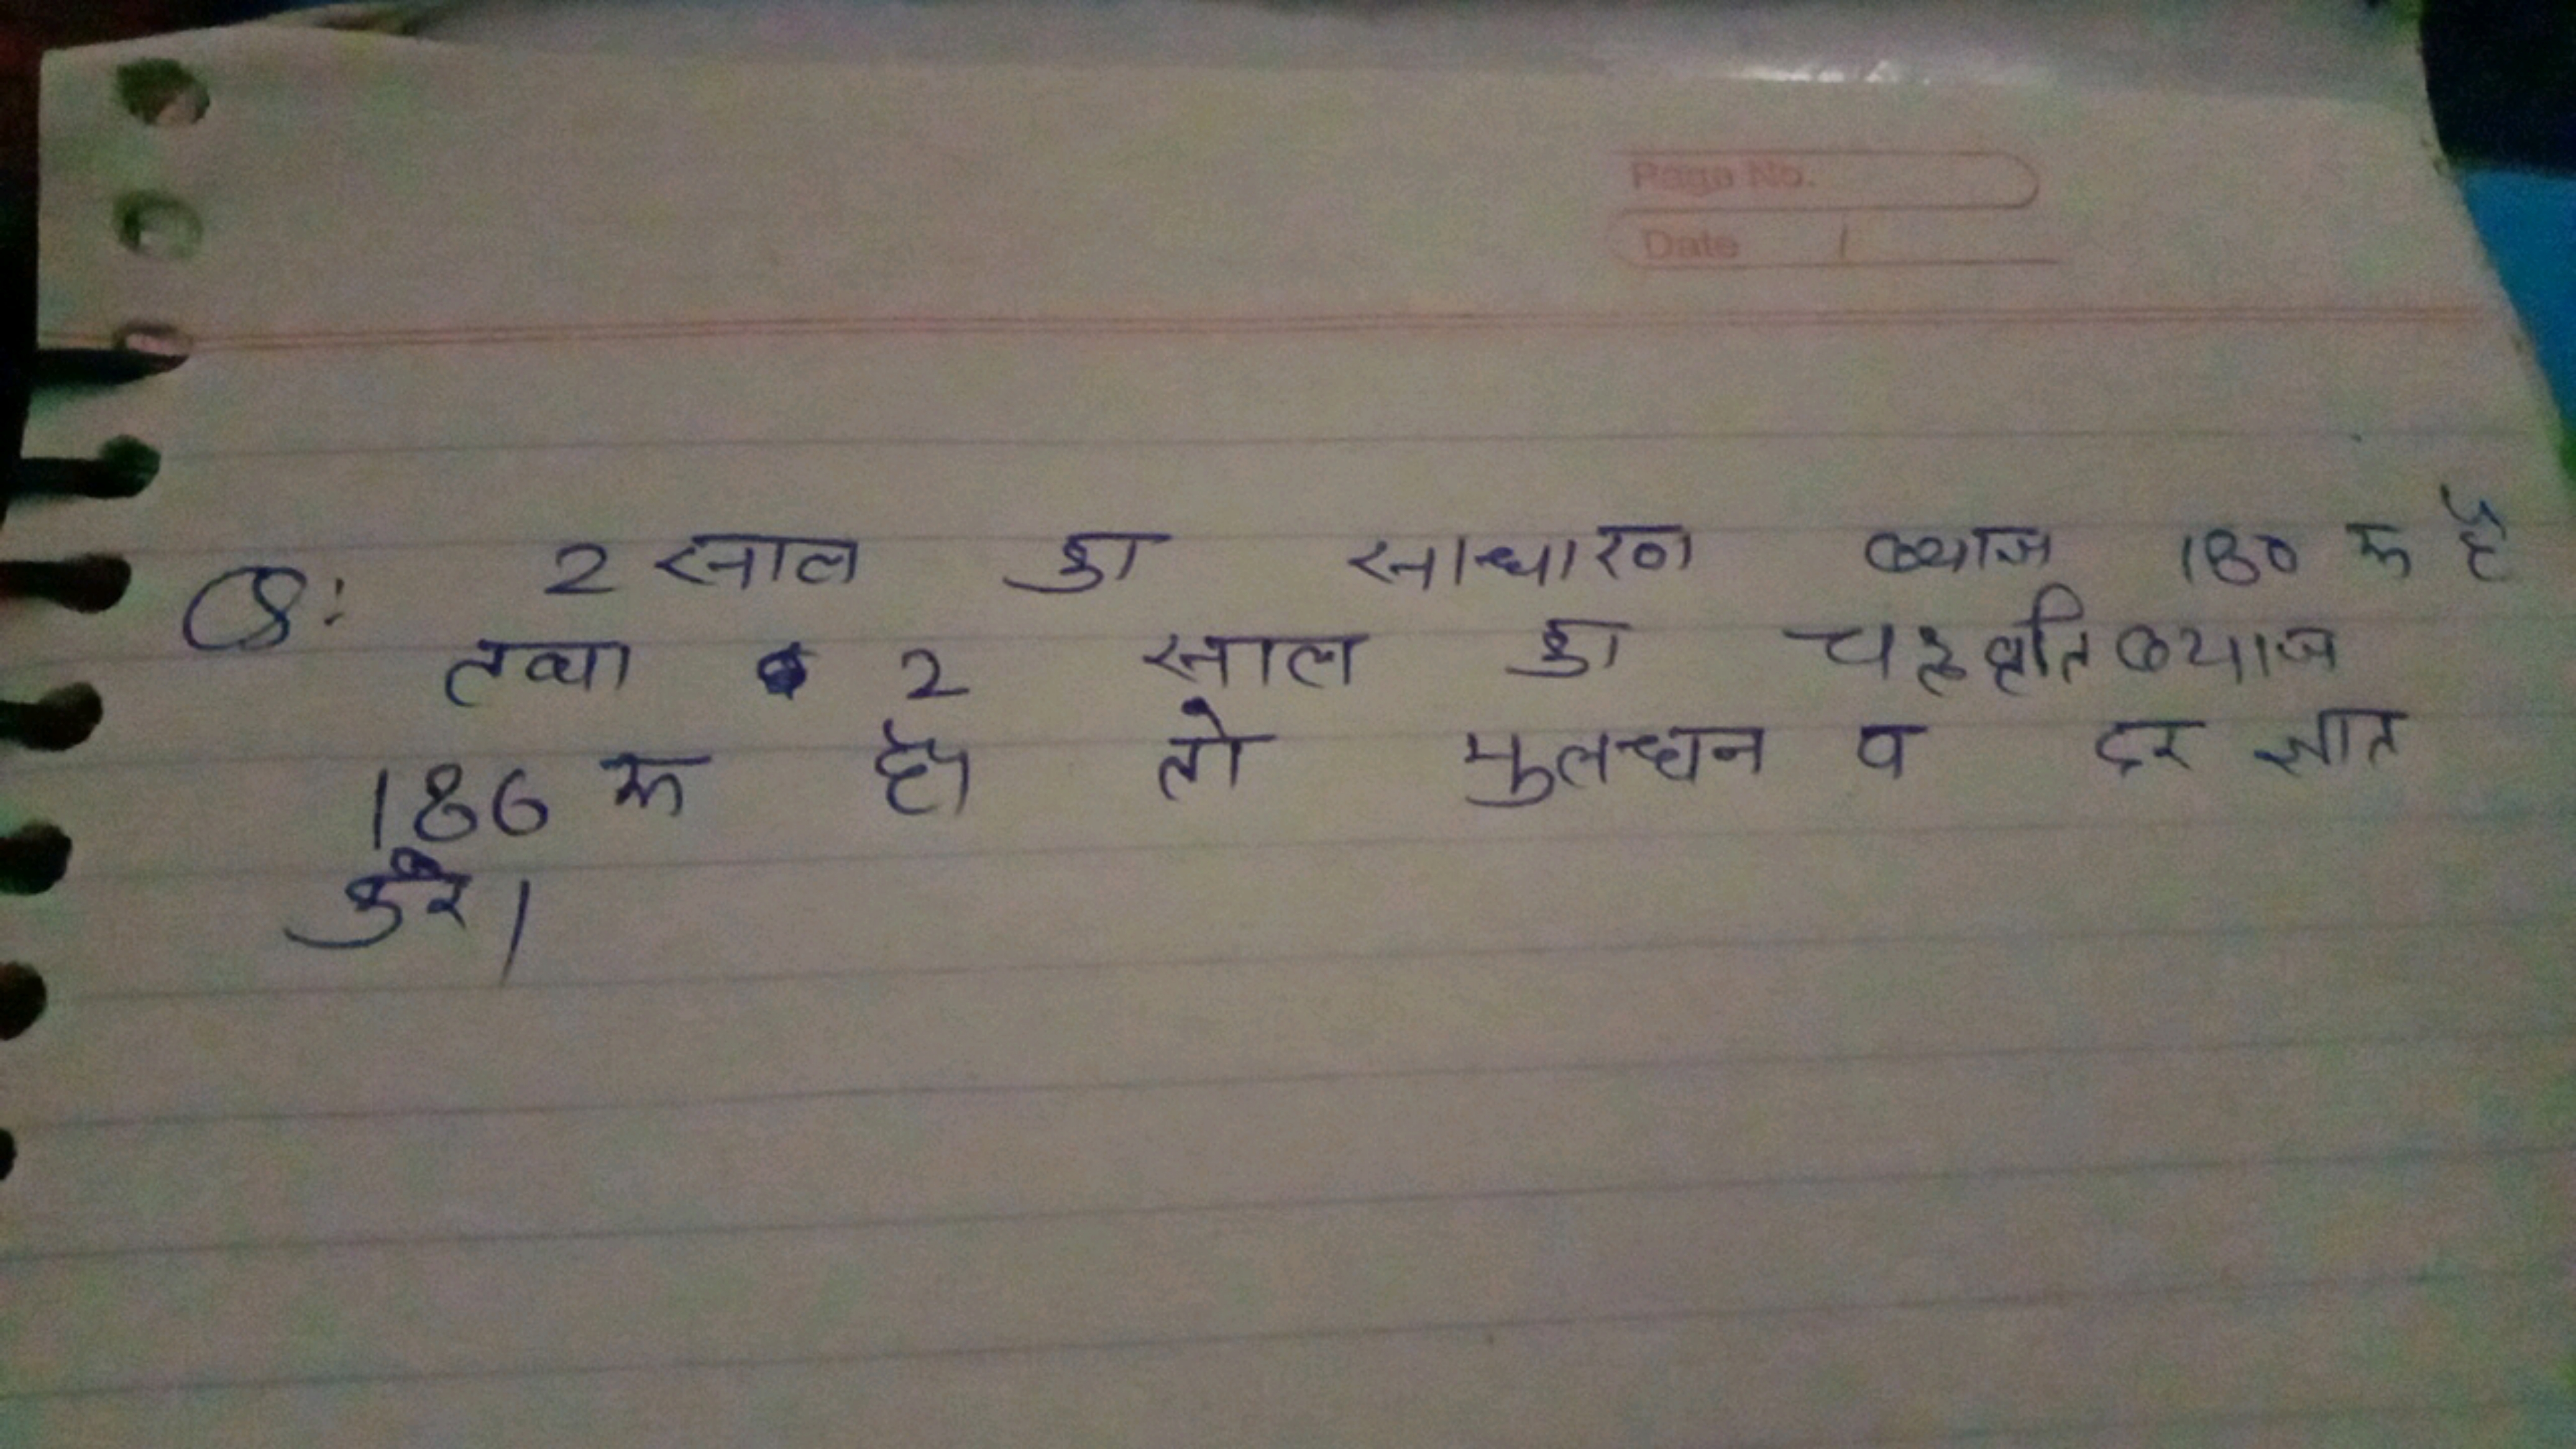 Page No.
Date /
Q: 2 साल का साधारण ब्याज 180 रू है
तथा 2 साल का चक्रवृति ब्याज
186 रू है। तो मुलधन व दर ज्ञात
करे।